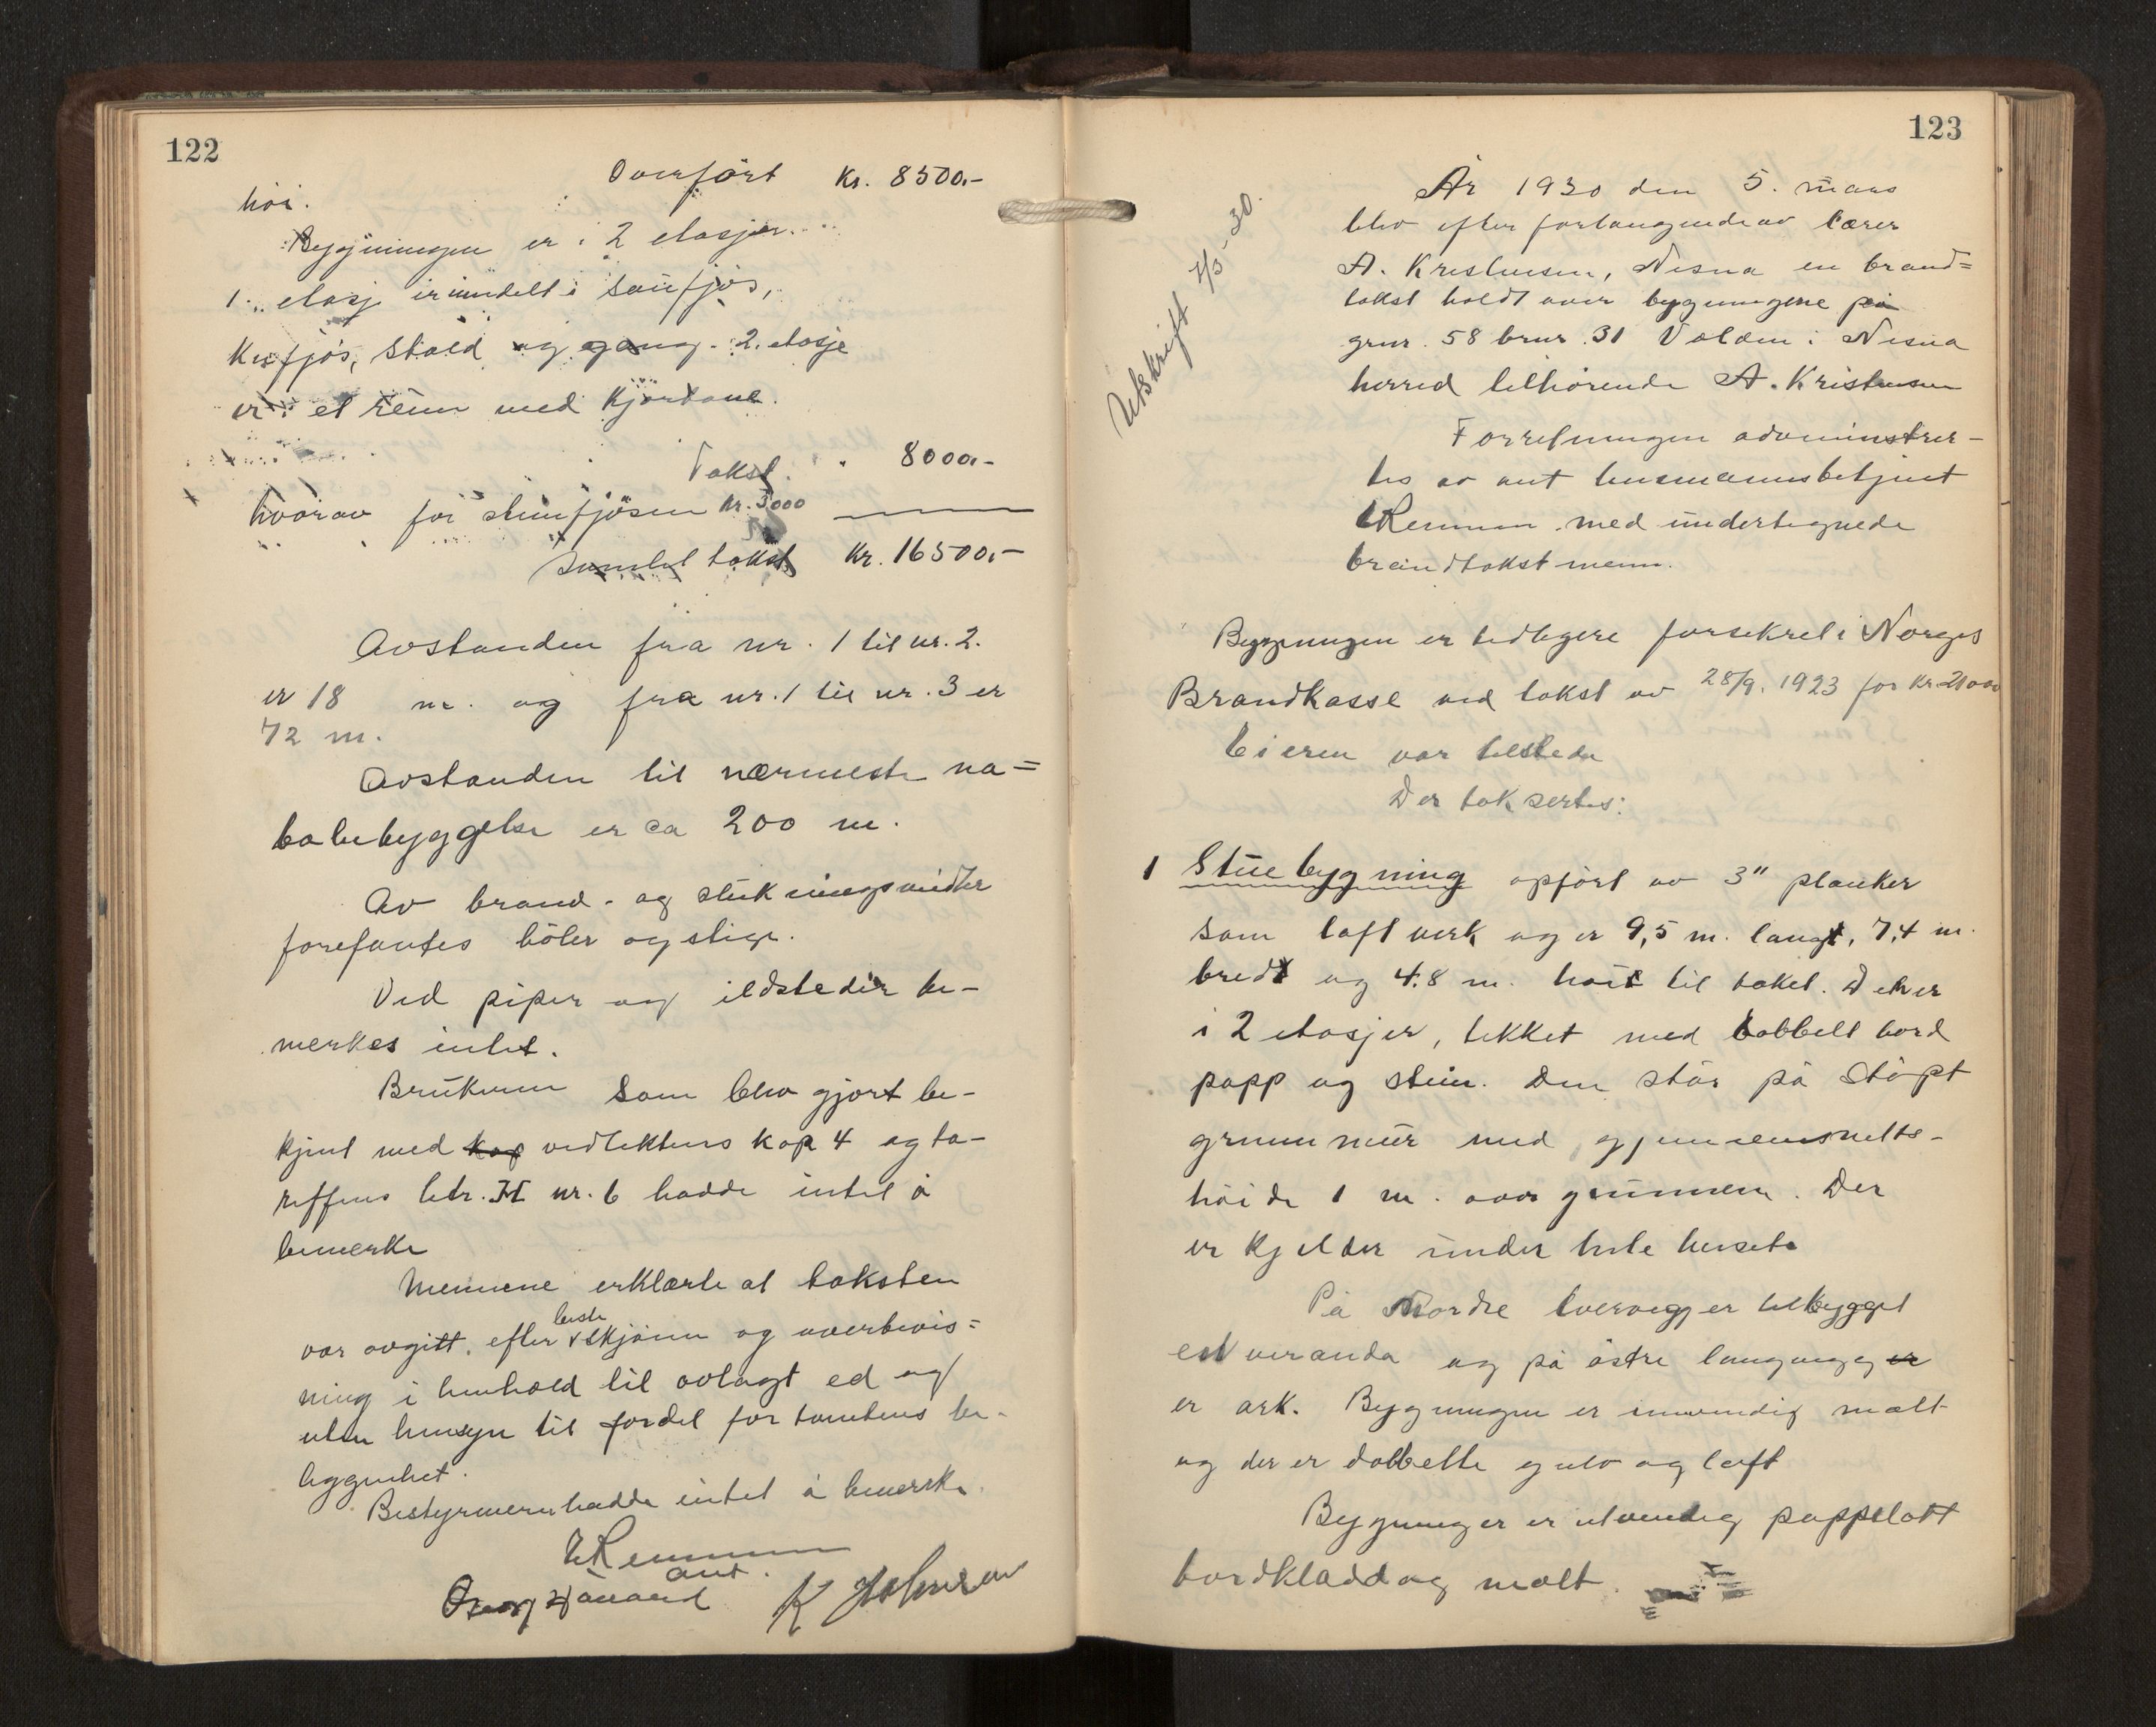 122
Overført Kr. 8500.-
høi.
Bygningen er i 2 etasjer.
1. etasje er inndelt i saufjøs,
Kufjøs, Stald og gang. 2. etasje
er i et rum med Kjørbane.
Takst. " 8000.-
hvorav for stenfjøsen Kr. 3000
Samlet takst Kr. 16500.-
Avstanden fra nr. 1 til nr. 2.
er 18 m. og fra nr. 1 til nr. 3 er
72 m.
Avstanden til nærmeste na=
bobebyggelse er ca 200 m.
Av brand- og slukningsmidler
forefantes bøter og stige.
Ved piper og ildsteder be-
merkes intet.
Brukeren som blev gjort be-
kjent med kap vedtektens kap 4 og ta-
riffens litr. H nr. 6 hadde intet å
bemerke
Mennene erklærte at taksten
beste
var avgitt efter v skjønn og overbevis=
ning i henhold til avlagt ed og
uten hensyn til fordel for tomtens be-
liggenhet.
Bestyreren hadde intet å bemerke.
Remmen
ant.
K Johnsen
123
Utskrift 7/3-30.
År 1930 den 5. mars
blev efter forlangende av lærer
A. Kristensen, Nesna en brand=
takst holdt over bygningene på
grnr. 58 brnr. 31 Volden i Nesna
herred tilhørende A. Kristensen
Forretningen adominstrer-
tes av ant lensmannsbetjent
Remmen med undertegnede
brandtakstmenn.
Bygningen er tidligere forsikret i Norges
Brandkasse ved takst av 28/9. 1923 for Kr. 21000
Eieren var tilstede
Der taksertes:
1 Stuebygning opført av 3" planker
som laftverk og er 9,5 m. langt, 7,4 m.
bredt og 4.8 m. høit til taket. Den er
i 2 etasjer, tekket med dobbelt bord
papp og stein. Den står på støpt
grunnmur med gjennemsnitts-
høide 1 m. over grunnen. Der
er kjelder under hele huset.
På Nordre tvervegg er tilbygget
en veranda og på østre langvegg er
er ark. Bygningen er innvendig malt
og der er dobbelte gulv og loft
Bygningen er utvendig pappslått
bordkladd og malt.